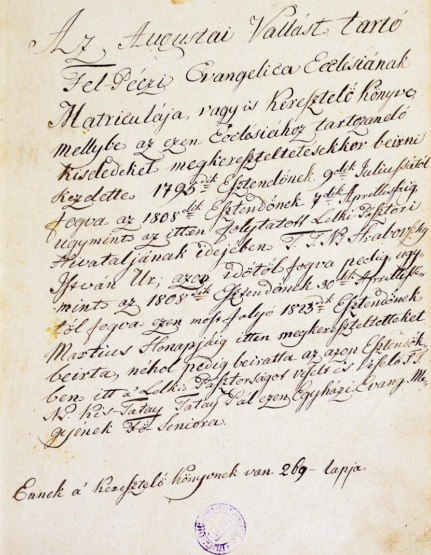 Az Augustai Vallást tartó
Fel-Péczi Evangelica Ecclésiának
Matriculája, vagy is Keresztelő Könyve,
mellybe az ezen Ecclésiához tartozandó
kisdedeket megkereszteltetésekkor beirni
kezdette 1795dik Esztendőnek 9dik Juliussától
fogva az 1808dik Esztendőnek 7dik Aprillisig
ugymint az itten folytatott Lelki Pásztori
Hivataljának idejében T. T. N. Skaboryky
Istvan Ur; azon időtől fogva pedig ugy-
mint az 1808dik Esztendőnek 30dik Aprillisé-
től fogva ezen most folyó 1823dik Esztendőnek
Martius Honapjáig itten megkereszteltetteket
beirta, néhol pedig beiratta az azon Esztendők-
ben itt á Lelki Pásztorságot viselt és viselő T. T.
N. Kis-Tatay Tatay Pál ezen Egyházi Evang. Me
gyének Fő Seniora.
Ennek a' Keresztelő Könyvnek van 269- lapja.